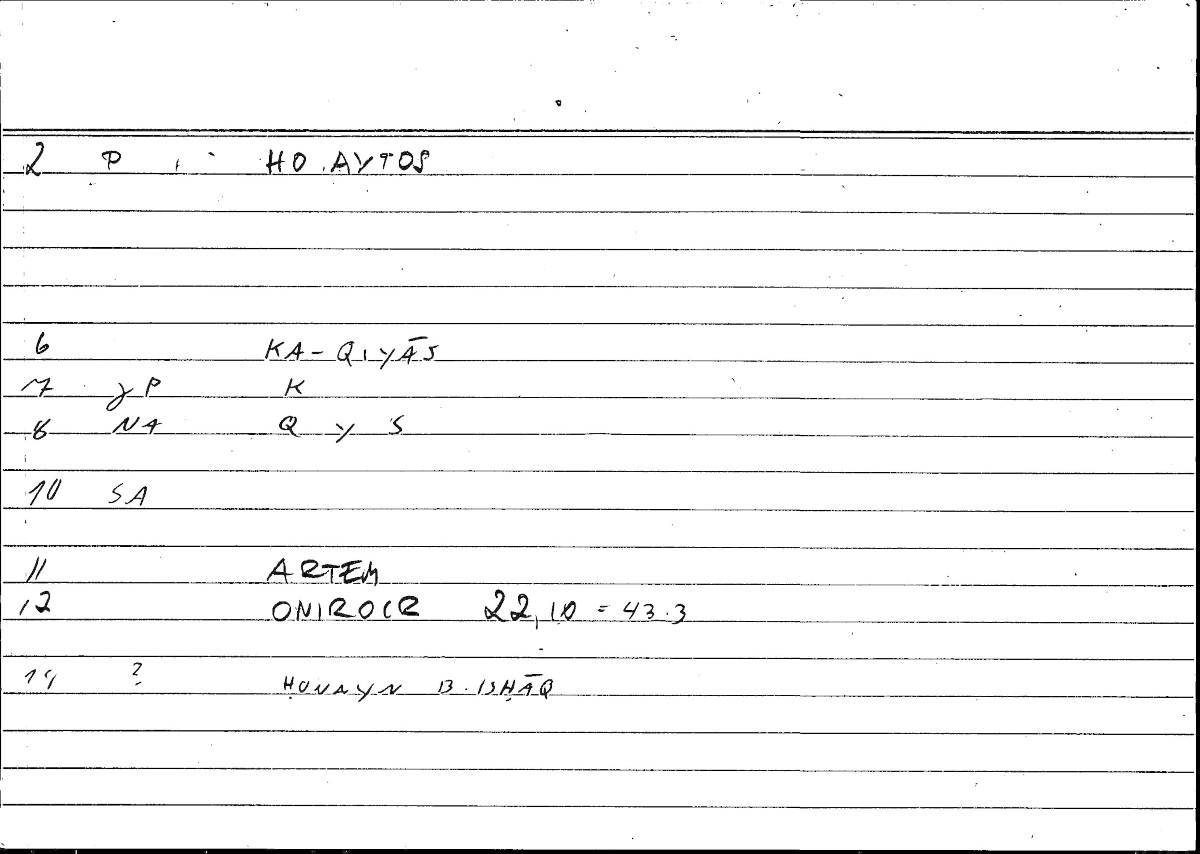 2 P HO.AYTOS
6 KA-QIYĀS
7 γP K
8 NA Q Y S
10 SA
11 ARTEM
12 ONIROCR 22,10 = 43.3
14 ? ḤUNAYN B. ISḤĀQ